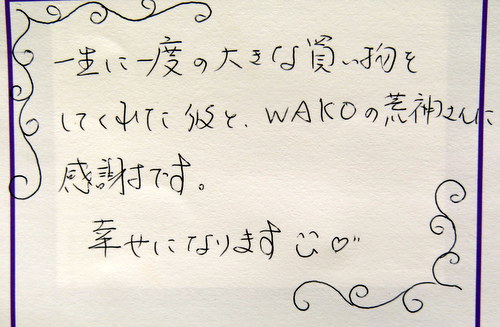 一生に一度の大きな買い物を
してくれた彼と、WAKOの荒神さんに
感謝です。
幸せになります ♡〃